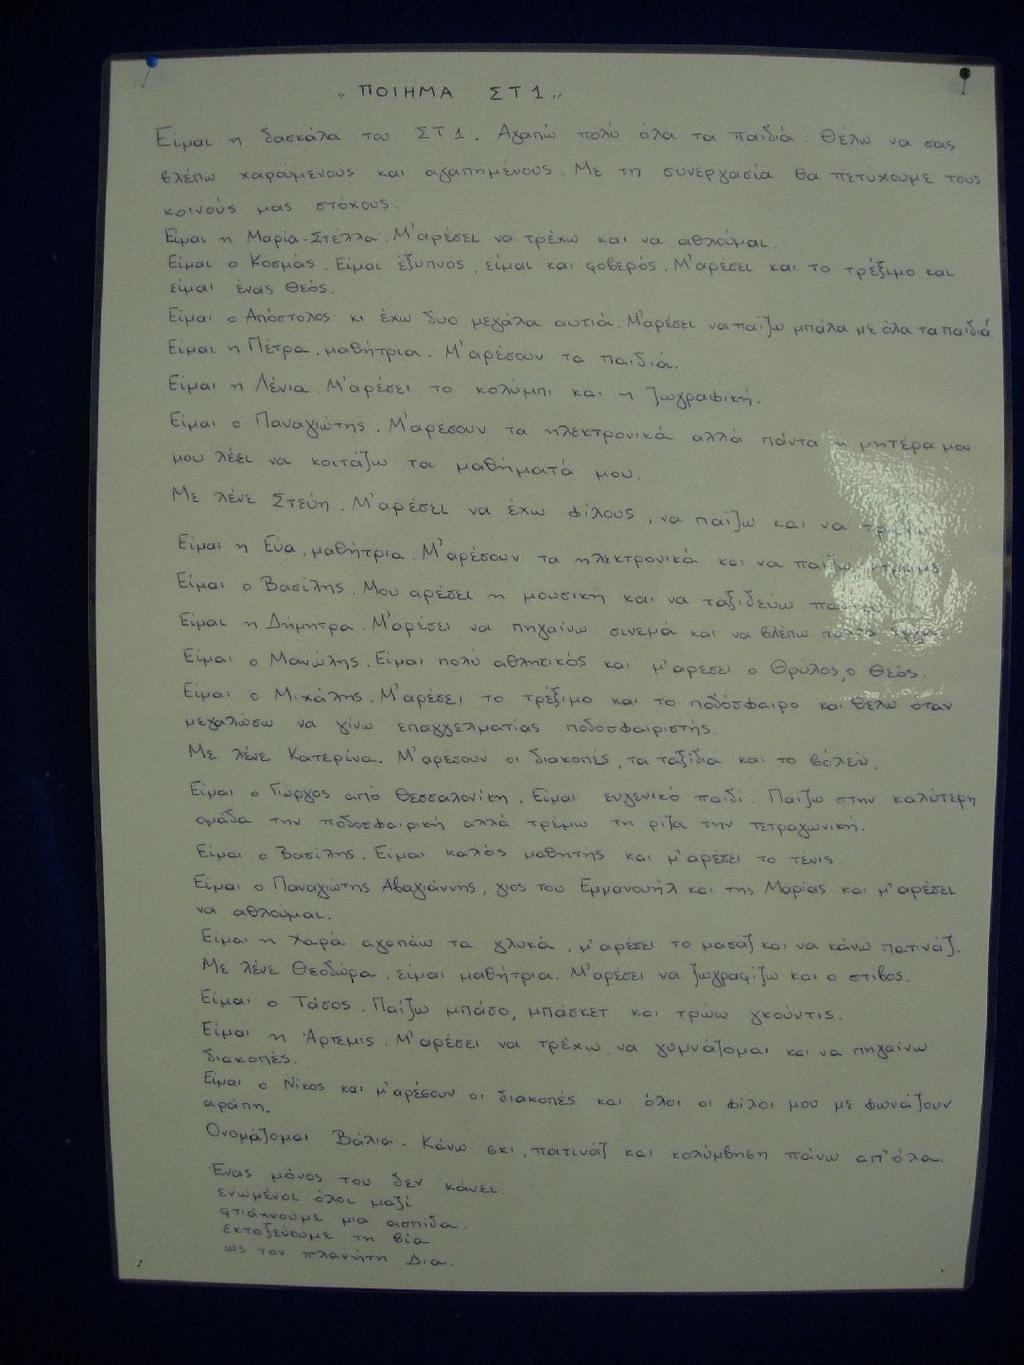 „ ΠΟΙΗΜΑ ΣΤ1 „
Είμαι η δασκάλα του ΣΤ1. Αγαπώ πολύ όλα τα παιδιά. Θέλω να σας
βλέπω χαρούμενους και αγαπημένους. Με τη συνεργασία θα πετύχουμε τους
κοινούς μας στόχους.
Είμαι η Μαρία-Στέλλα. Μ'αρέσει να τρέχω και να αθλούμαι.
Είμαι ο Κοσμάς. Είμαι έξυπνος, είμαι και φοβερός. Μ'αρέσει και το τρέξιμο και
είμαι ένας Θεός.
Είμαι ο Απόστολος κι έχω δυο μεγάλα αυτιά. Μ'αρέσει να παίζω μπάλα με όλα τα παιδιά
Είμαι η Πέτρα, μαθήτρια. Μ'αρέσουν τα παιδιά.
Είμαι η Λένια. Μ'αρέσει το κολύμπι και η ζωγραφική.
Είμαι ο Παναγιώτης. Μ'αρέσουν τα ηλεκτρονικά αλλά πάντα η μητέρα μου
μου λέει να κοιτάζω τα μαθήματά μου.
Με λένε Στεύη. Μ'αρέσει να έχω φίλους, να παίζω και να
Είμαι η Εύα, μαθήτρια. Μ'αρέσουν τα ηλεκτρονικά και να παίζω
Είμαι ο Βασίλης. Μου αρέσει η μουσική και να ταξιδεύω
Είμαι η Δήμητρα. Μ'αρέσει να πηγαίνω σινεμά και να βλέπω
Είμαι ο Μανώλης. Είμαι πολύ αθλητικός και μ'αρέσει ο Θρύλος, ο Θεός.
Είμαι ο Μιχάλης. Μ'αρέσει το τρέξιμο και το ποδόσφαιρο και θέλω όταν
μεγαλώσω να γίνω επαγγελματίας ποδοσφαιριστής.
Με λένε Κατερίνα. Μ'αρέσουν οι διακοπές, τα ταξίδια και το βόλεϋ.
Είμαι ο Γιώργος από Θεσσαλονίκη. Είμαι ευγενικό παιδί. Παίζω στην καλύτερη
ομάδα την ποδοσφαιρική αλλά τρέμω τη ρίζα την τετραγωνική.
Είμαι ο Βασίλης. Είμαι καλός μαθητής και μ'αρέσει το τένις
Είμαι ο Παναγιώτης Αβαγιάννης, γιος του Εμμανουήλ και της Μαρίας και μ'αρέσει
να αθλούμαι.
Είμαι η Χαρά αγαπάω τα γλυκά, μ'αρέσει το μασάζ και να κάνω πατινάζ.
Με λένε Θεοδώρα, είμαι μαθήτρια. Μ'αρέσει να ζωγραφίζω και ο στίβος.
Είμαι ο Τάσος. Παίζω μπάσο, μπάσκετ και τρώω γκούντις.
Είμαι η Άρτεμις. Μ'αρέσει να τρέχω, να γυμνάζομαι και να πηγαίνω
διακοπές.
Είμαι ο Νίκος και μ'αρέσουν οι διακοπές και όλοι οι φίλοι μου με φωνάζουν
αράπη.
Ονομάζομαι Βάλια. Κάνω σκι, πατινάζ και κολύμβηση πάνω απ'όλα.
Ένας μόνος του δεν κάνει.
ενωμένοι όλοι μαζί
φτιάχνουμε μια ασπίδα.
εκτοξεύουμε τη βία
ως τον πλανήτη Δία.